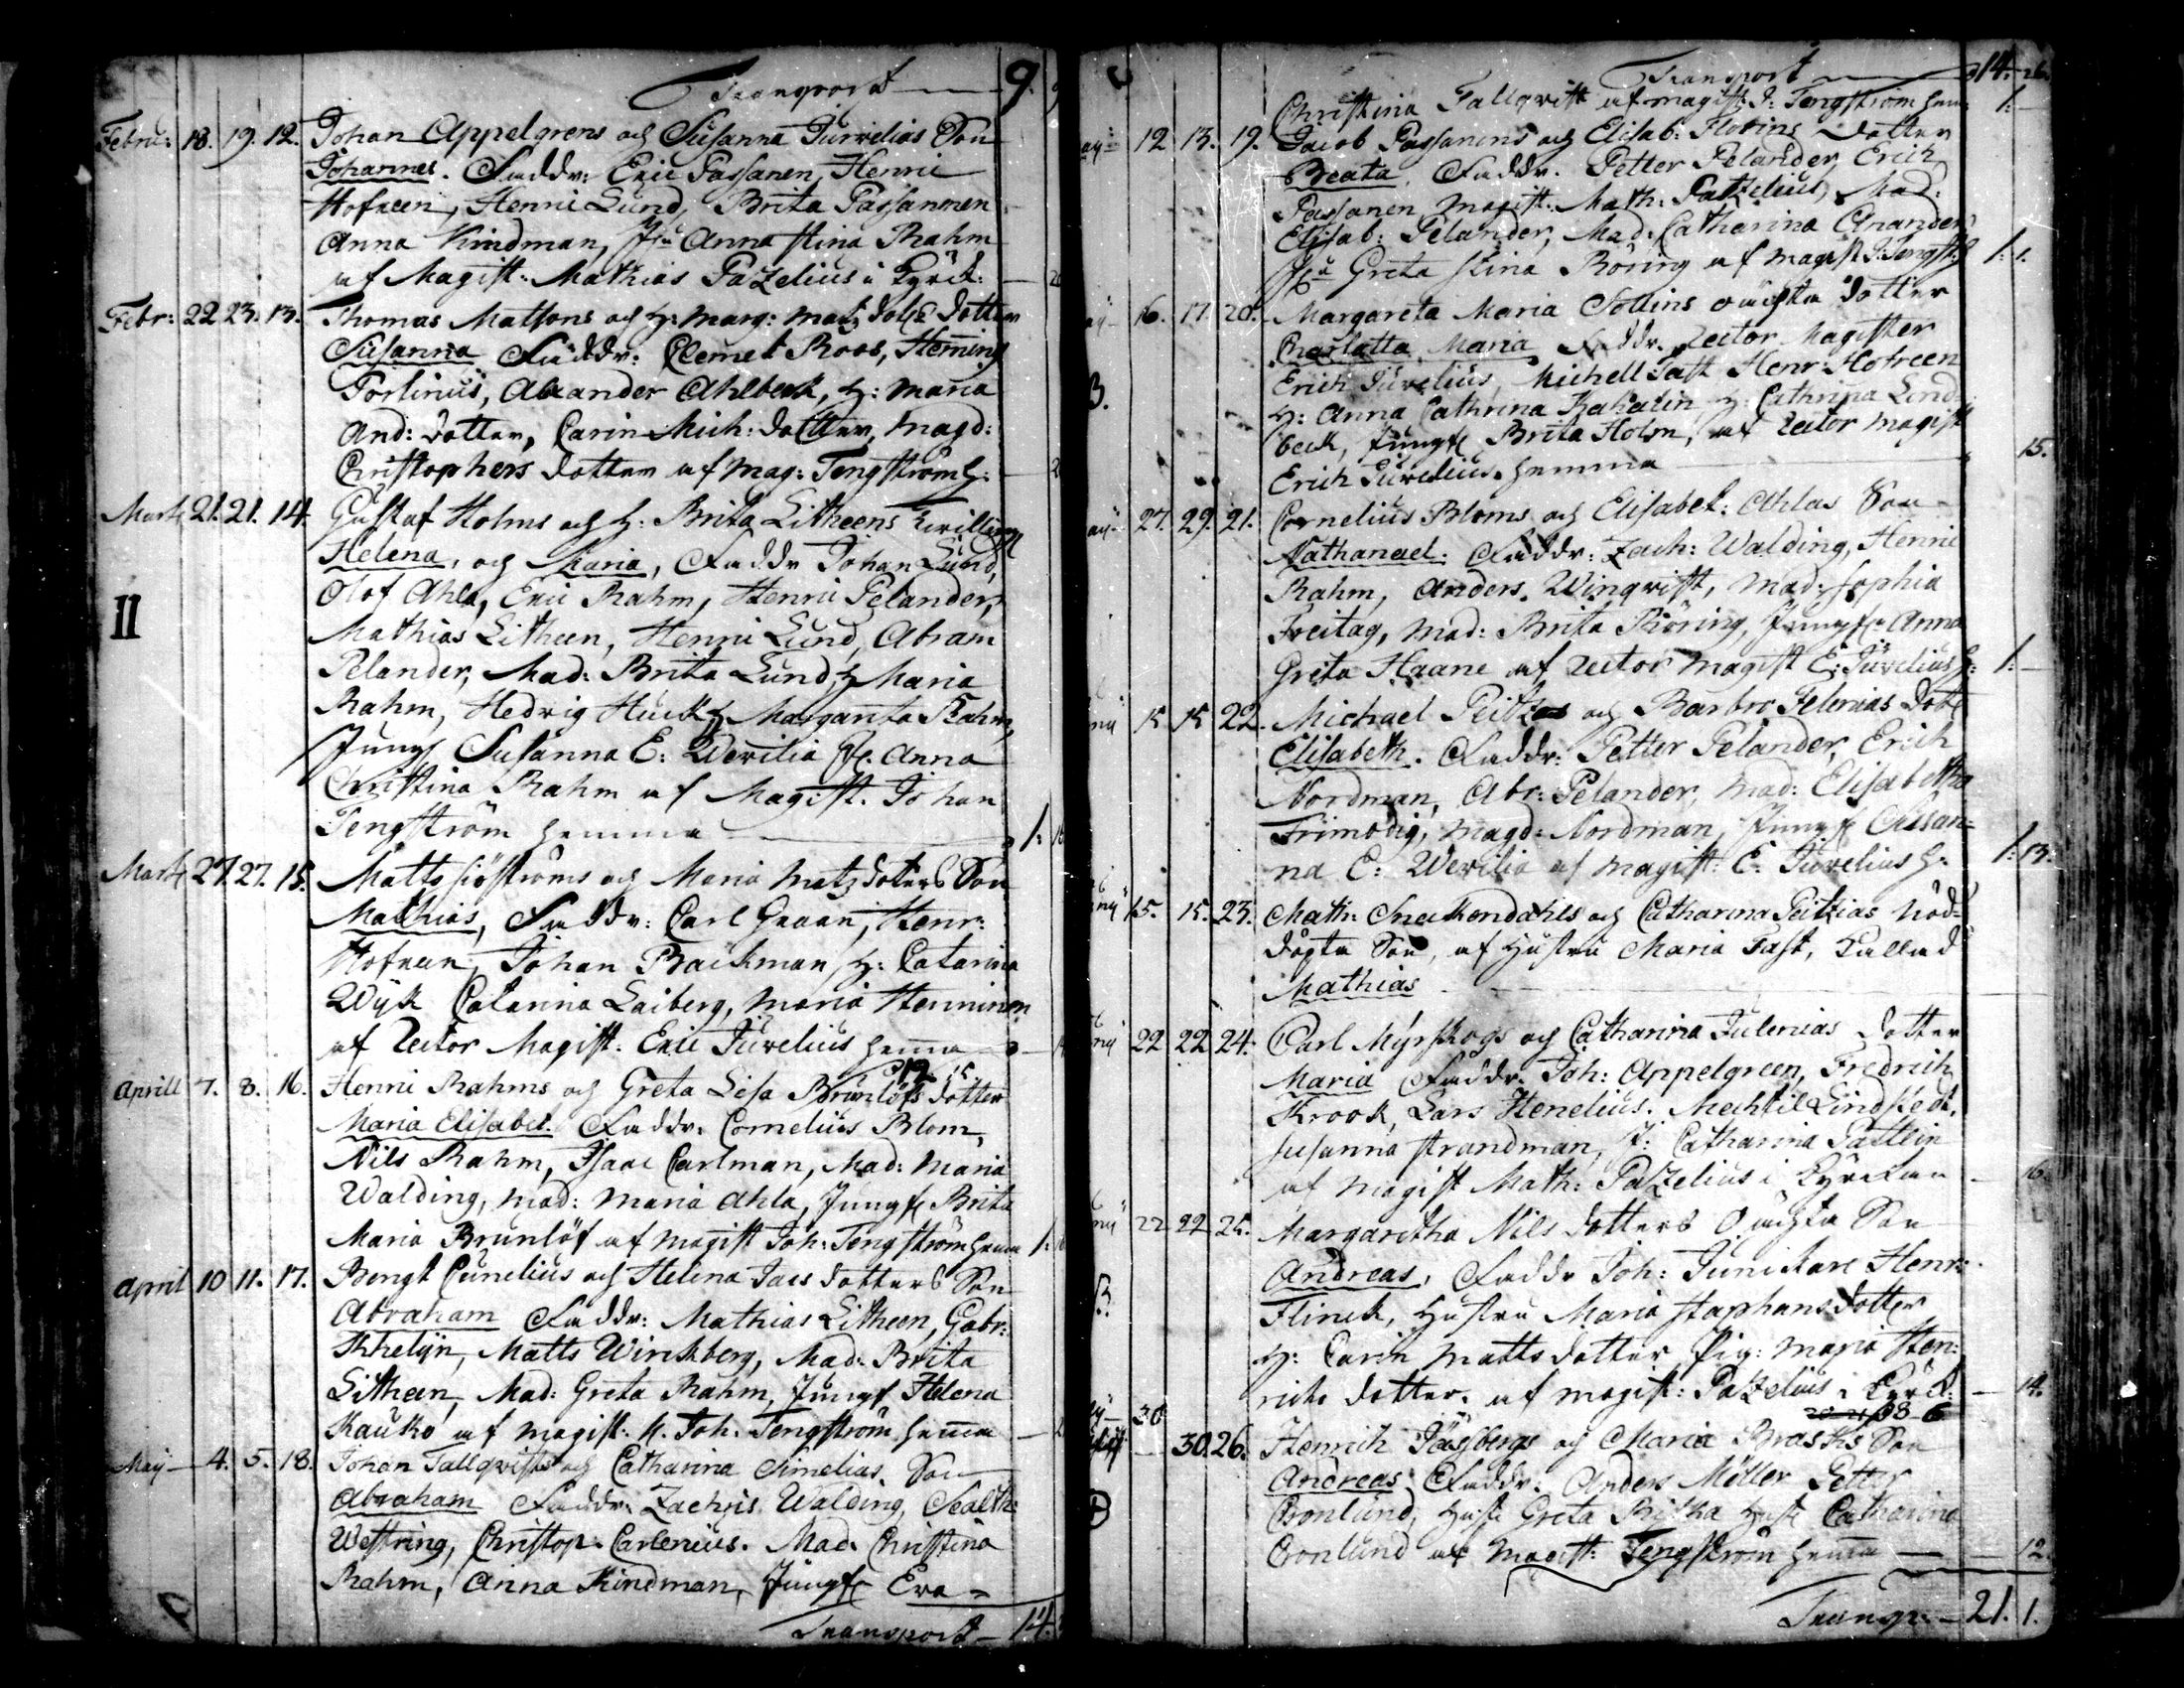 Transport — 9.
Febru: 18. 19. 12. Johan Appelgrens och Susanna Juvelias Son
Johannes. Faddr: Eric Passanen, Henric
Hofreen, Henric Lund, Brita Passannen
Anna Kindman, Jfu Anna Stina Rahm
af Magist: Mathias Pazelius i Kyrk:
Febr: 22 23. 13. Thomas Matsons och H: Marg: Matz dotts dotter
Susanna Faddr: Clemet Roos, Heming
Forlinus, Alexander Ahlbeck, H: Maria
And: dotter, Carin Mich: dotter, Magd:
Christophers dotter af Mag: Tengström h:
Marti 21. 21. 14. Gustaf Holms och H: Brita Litheens Tvillingar
Helena, och Maria, Faddr Johan Lund,
Olof Ahla, Eric Rahm, Henric Pelander,
II Mathias Litheen, Henric Lund, Abram
Pelander, Mad: Brita Lund, H Maria
Rahm, Hedvig Huck, H Margareta Rahm,
Jungf Susanna E: Wevilia Jfr. Anna
Christina Rahm af Magist. Johan
Tengström hemma — 1:
Marti 27. 27. 15. Matts Siöströms och Maria Matz doters Son
Mathias, Faddr: Carl Graan, Henr:
Hofreen, Johan Backman, H: Catarina
Wijk Catarina Laiberg, Maria Henninen
af Rector Magist. Eric Juvelius hema
12. 15
Aprill 7. 8. 16. Henric Rahms och Greta Lisa Brunlöfs dotter
Maria Elisabet. Faddr. Cornelius Blom,
Nils Rahm, Isaac Carlman, Mad: Maria
Walding, Mad: Maria Ahla, Jungf Brita
Maria Brunlöf af Magist Joh: Tengström hema 1:
April 10 11. 17. Bengt Cunelius och Helena Jacs dotters Son
Abraham Faddr: Mathias Litheen, Gabr:
Thelijn, Matts Winckberg, Mad: Brita
Litheen, Mad: Greta Rahm, Jungf Helena
Kauko af Magist: H. Joh. Tengström hema
May 4. 5. 18. Johan Tallqvists och Catharina Simelias Son
Abraham Faddr: Zachris Walding,
Westring, Christop. Carlenius. Mad. Christina
Rahm, Anna Kindman, Jungf Eva
Transport — 14.
Transport — 14. 26.
Christina Tallqvist af Magist: J: Tengström hem: 1:
12 13. 19. Jacob Passanens och Elisab: Florins dotter
Beata. Faddr. Petter Pelander, Erich
Passanen, Magist: Math: Pazelius, Mad:
Elisab: Pelander, Mad: Catharina Anander,
Jfu Greta Stina Röring af Magist J: Tengst: 1: 1.
16. 17. 20. Margareta Maria Sollins oäckta dotter
Charlotta Maria Faddr. Rector Magister
Erich Juvelius, Michell Fast Henr: Hofreen
B. H: Anna Cathrina H: Cathrina Lind-
beck, Jungf Brita Holm, af Rector Magist
Erich Juvelius. hemma — 15.
27. 29. 21. Cornelius Bloms och Elisabet: Ahlas Son
Nathanael. Faddr: Zach: Walding, Henric
Rahm, Anders Winqvist, Mad: Sophia
Freitag, Mad: Brita Röring, Jungfr Anna
Greta Haane af Rector Magist E: Juvelius h: 1:
15 15 22. Michael Peitzas och Barbro Jelenias dott
Elisabeth. Faddr: Petter Pelander, Erich
Nordman, Abr: Pelander, Mad: Elisabetha
Frimodig, Magd: Nordman, Jungf Susan=
na C: Wevilia af Magist: E: Juvelius h: 1: 13.
15. 15. 23. Math: Sneckendahls och Catharina Peitzias nöd=
döpta Son, af Hustru Maria Fast, kallad
Mathias
22 22 24. Carl Myrskogs och Catharina Julenias dotter
Maria Faddr. Joh: Appelgreen, Fredrich
Krook, Lars Henelius. Mechtil Lindstedt,
Susanna Strandman, J: Catharina Pattlin
af Magist Math: Pazelius i Kyrckan — 16.
22 22 25. Margaretha Nils dotters Oäckta Son
Andreas, Faddr Joh: Junikare Henr:
B. Flinck, Hustru Maria Staphans dotter
H: Carin Matts dotter Pig: Maria Hen:
richs dotter. af Magist: Pazelius i Kyrck: — 14.
18 6
30 30. 26. Henrich Pässbergs och Maria Brasks Son
Andreas, Faddr. Anders Möller Petter
Cronlund, Hust Greta Riska Hust Catharina
Cronlund af Magist: Tengström hema — 12.
Transp: — 21. 1.